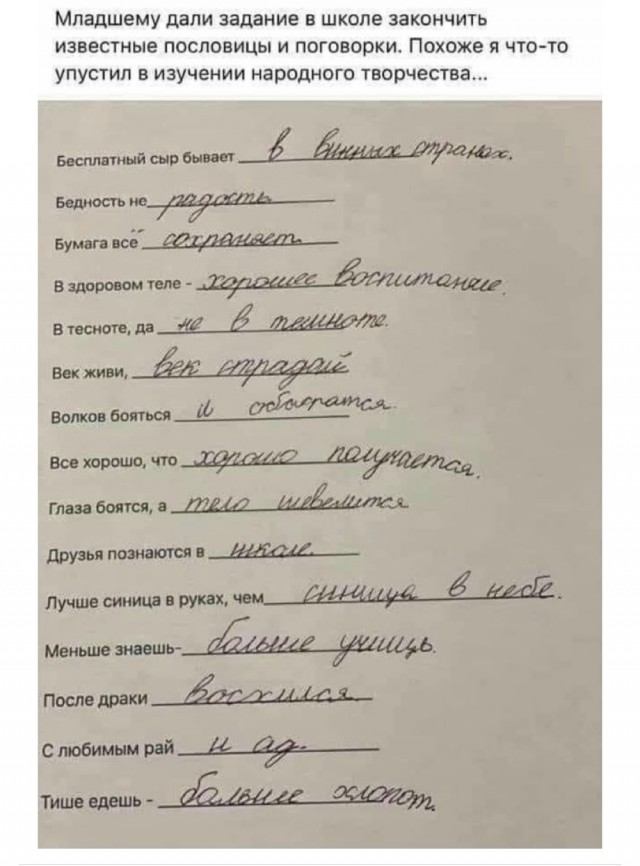 Младшему дали задание в школе закончить
известные пословицы и поговорки. Похоже я что-то
упустил в изучении народного творчества...
Бесплатный сыр бывает в винных странах.
Бедность не радость
Бумага всё сохраняет.
В здоровом теле - хорошее воспитание.
В тесноте, да не в темноте.
Век живи, век страдай
Волков бояться и обосратся.
Все хорошо, что хорошо получается.
Глаза боятся, а тело шевелится
Друзья познаются в школе.
Лучше синица в руках, чем синица в небе.
Меньше знаешь- больше учишь.
После драки
С любимым рай и ад.
Тише едешь - больше хлопот.